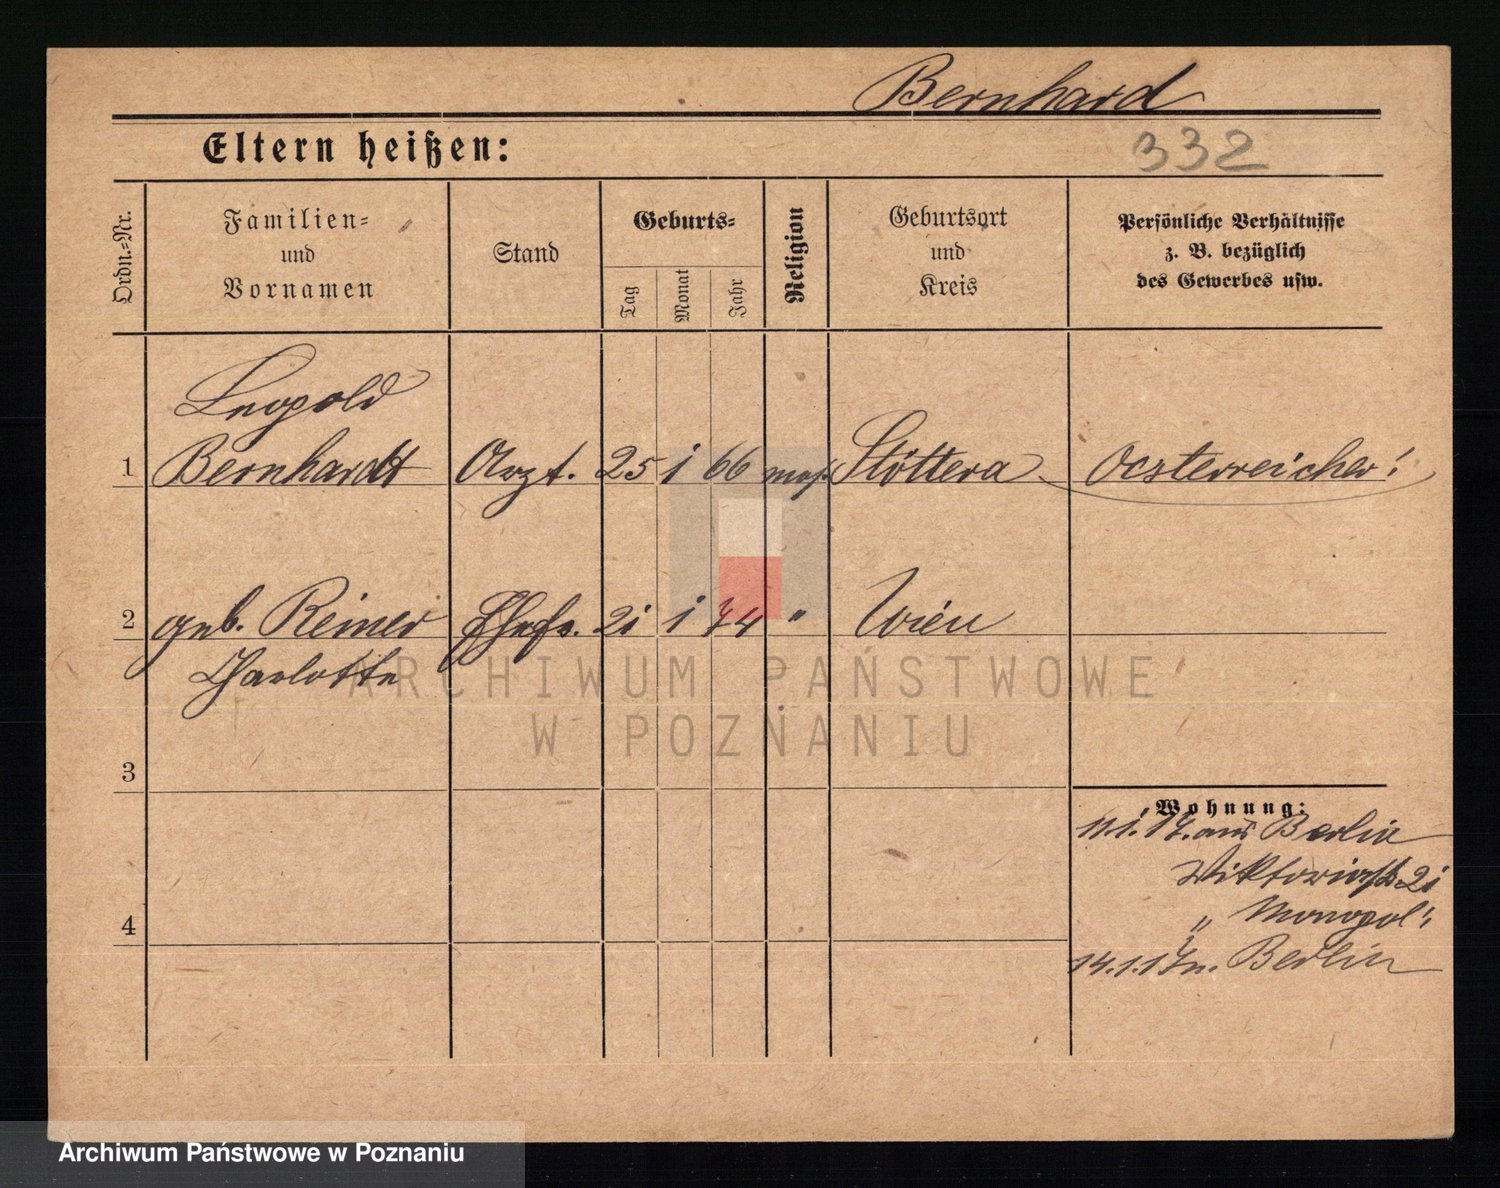 Bernhard
332
Eltern heißen:
Ordn.-Nr.
Familien-
und
Vornamen
Stand
Geburts-
Tag
Monat
Jahr
Religion
Geburtsort
und
Kreis
Persönliche Verhältnisse
z. B. bezüglich
des Gewerbes usw.
Leopold
1 Bernhardt Arzt. 25 1 66 mos. Stöttera Oesterreicher!
2 geb. Reiner Ehefr. 21 1 74 " Wien
Charlotte
ARCHIWUM PAŃSTWOWE
W POZNANIU
3
Wohnung:
11.1.17. aus Berlin
Wiktoriastr 21
"Monopol"
4
14.1.17 n. Berlin
Archiwum Państwowe w Poznaniu